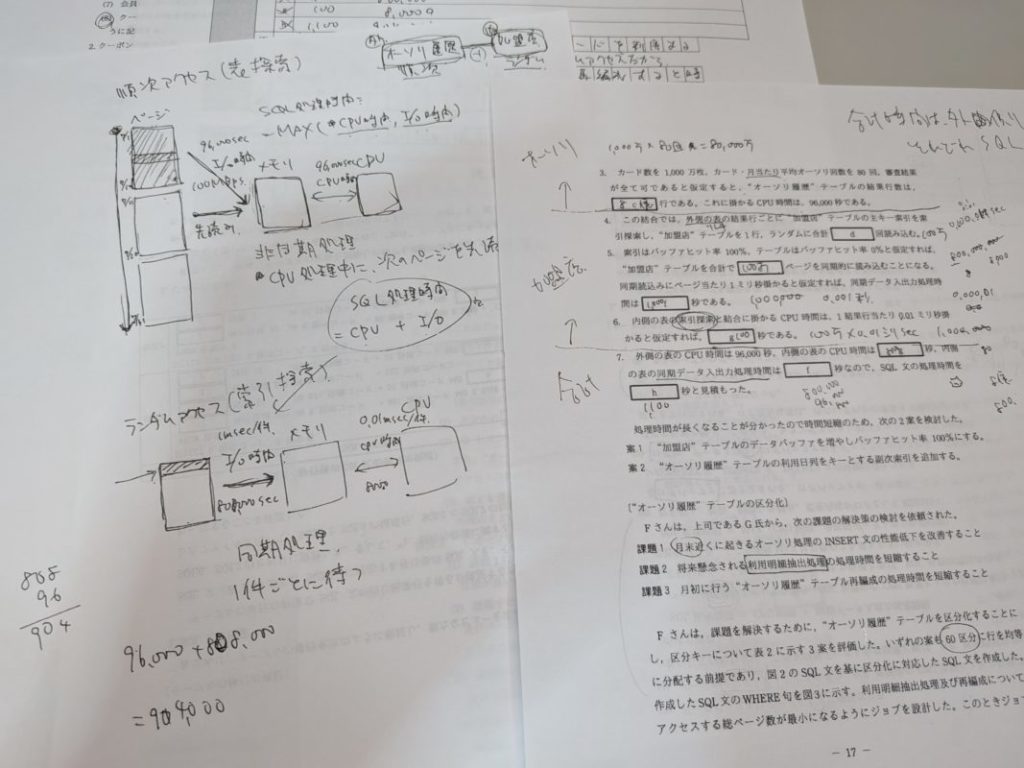 (7) 会員
2. クーポン
順次アクセス(表探索)
ページ
96,000sec
I/O時間
100MBps.
SQL処理時間:
=MAX(CPU時間, I/O時間)
メモリ
96,000sec
CPU
CPU時間
先読み
非同期処理
CPU処理中に、次のページを先読
SQL処理時間
= CPU + I/O
ランダムアクセス(索引探索)
1msec/件
I/O時間
808,000sec
メモリ
0.01msec/件.
CPU時間
8000
CPU
同期処理.
1件ごとに待つ
808
96
904
96,000+808,000
=904,000
オーソリ履歴
順次
加盟店
ランダム
合計時間は、
それぞれ SQL
オーソリ
1,000万×80回 =80,000万
3. カード数を 1,000 万枚，カード・月当たり平均オーソリ回数を 80 回，審査結果
が全て可であると仮定すると，“オーソリ履歴”テーブルの結果行数は，
8億 行である。これに掛かる CPU 時間は，96,000 秒である。
4. この結合では，外側の表の結果行ごとに“加盟店”テーブルの主キー索引を索
引探索し，“加盟店”テーブルを 1 行，ランダムに合計 d 回読み込む。
5. 索引はバッファヒット率 100%，テーブルはバッファヒット率 0%と仮定すれば，
“加盟店”テーブルを合計で ページを同期的に読み込むことになる。
同期読込みにページ当たり 1 ミリ秒掛かると仮定すれば，同期データ入出力処理時
間は 秒である。
加盟店
6. 内側の表の索引探索と結合に掛かる CPU 時間は，1 結果行当たり 0.01 ミリ秒掛
かると仮定すれば， 秒である。
7. 外側の表の CPU 時間は 96,000 秒，内側の表の CPU 時間は 秒，内側
の表の同期データ入出力処理時間は f 秒なので，SQL 文の処理時間を
h 秒と見積もった。
合計
1100
処理時間が長くなることが分かったので時間短縮のため，次の 2 案を検討した。
案 1 “加盟店”テーブルのデータバッファを増やしバッファヒット率 100%にする。
案 2 “オーソリ履歴”テーブルの利用日列をキーとする副次索引を追加する。
〔“オーソリ履歴”テーブルの区分化〕
F さんは，上司である G 氏から，次の課題の解決策の検討を依頼された。
課題 1 月末近くに起きるオーソリ処理の INSERT 文の性能低下を改善すること
課題 2 将来懸念される利用明細抽出処理の処理時間を短縮すること
課題 3 月初に行う“オーソリ履歴”テーブル再編成の処理時間を短縮すること
F さんは，課題を解決するために，“オーソリ履歴”テーブルを区分化することに
し，区分キーについて表 2 に示す 3 案を評価した。いずれの案も 60 区分に行を均等
に分配する前提であり，図 2 の SQL 文を基に区分化に対応した SQL 文を作成した。
作成した SQL 文の WHERE 句を図 3 に示す。利用明細抽出処理及び再編成について
アクセスする総ページ数が最小になるようにジョブを設計した。このときジョ
－ 17 －